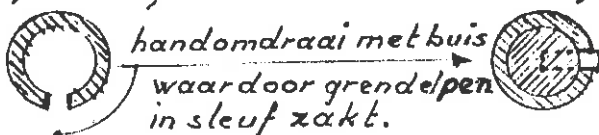 handomdraai met buis
waardoor grendelpen
in sleuf zakt.